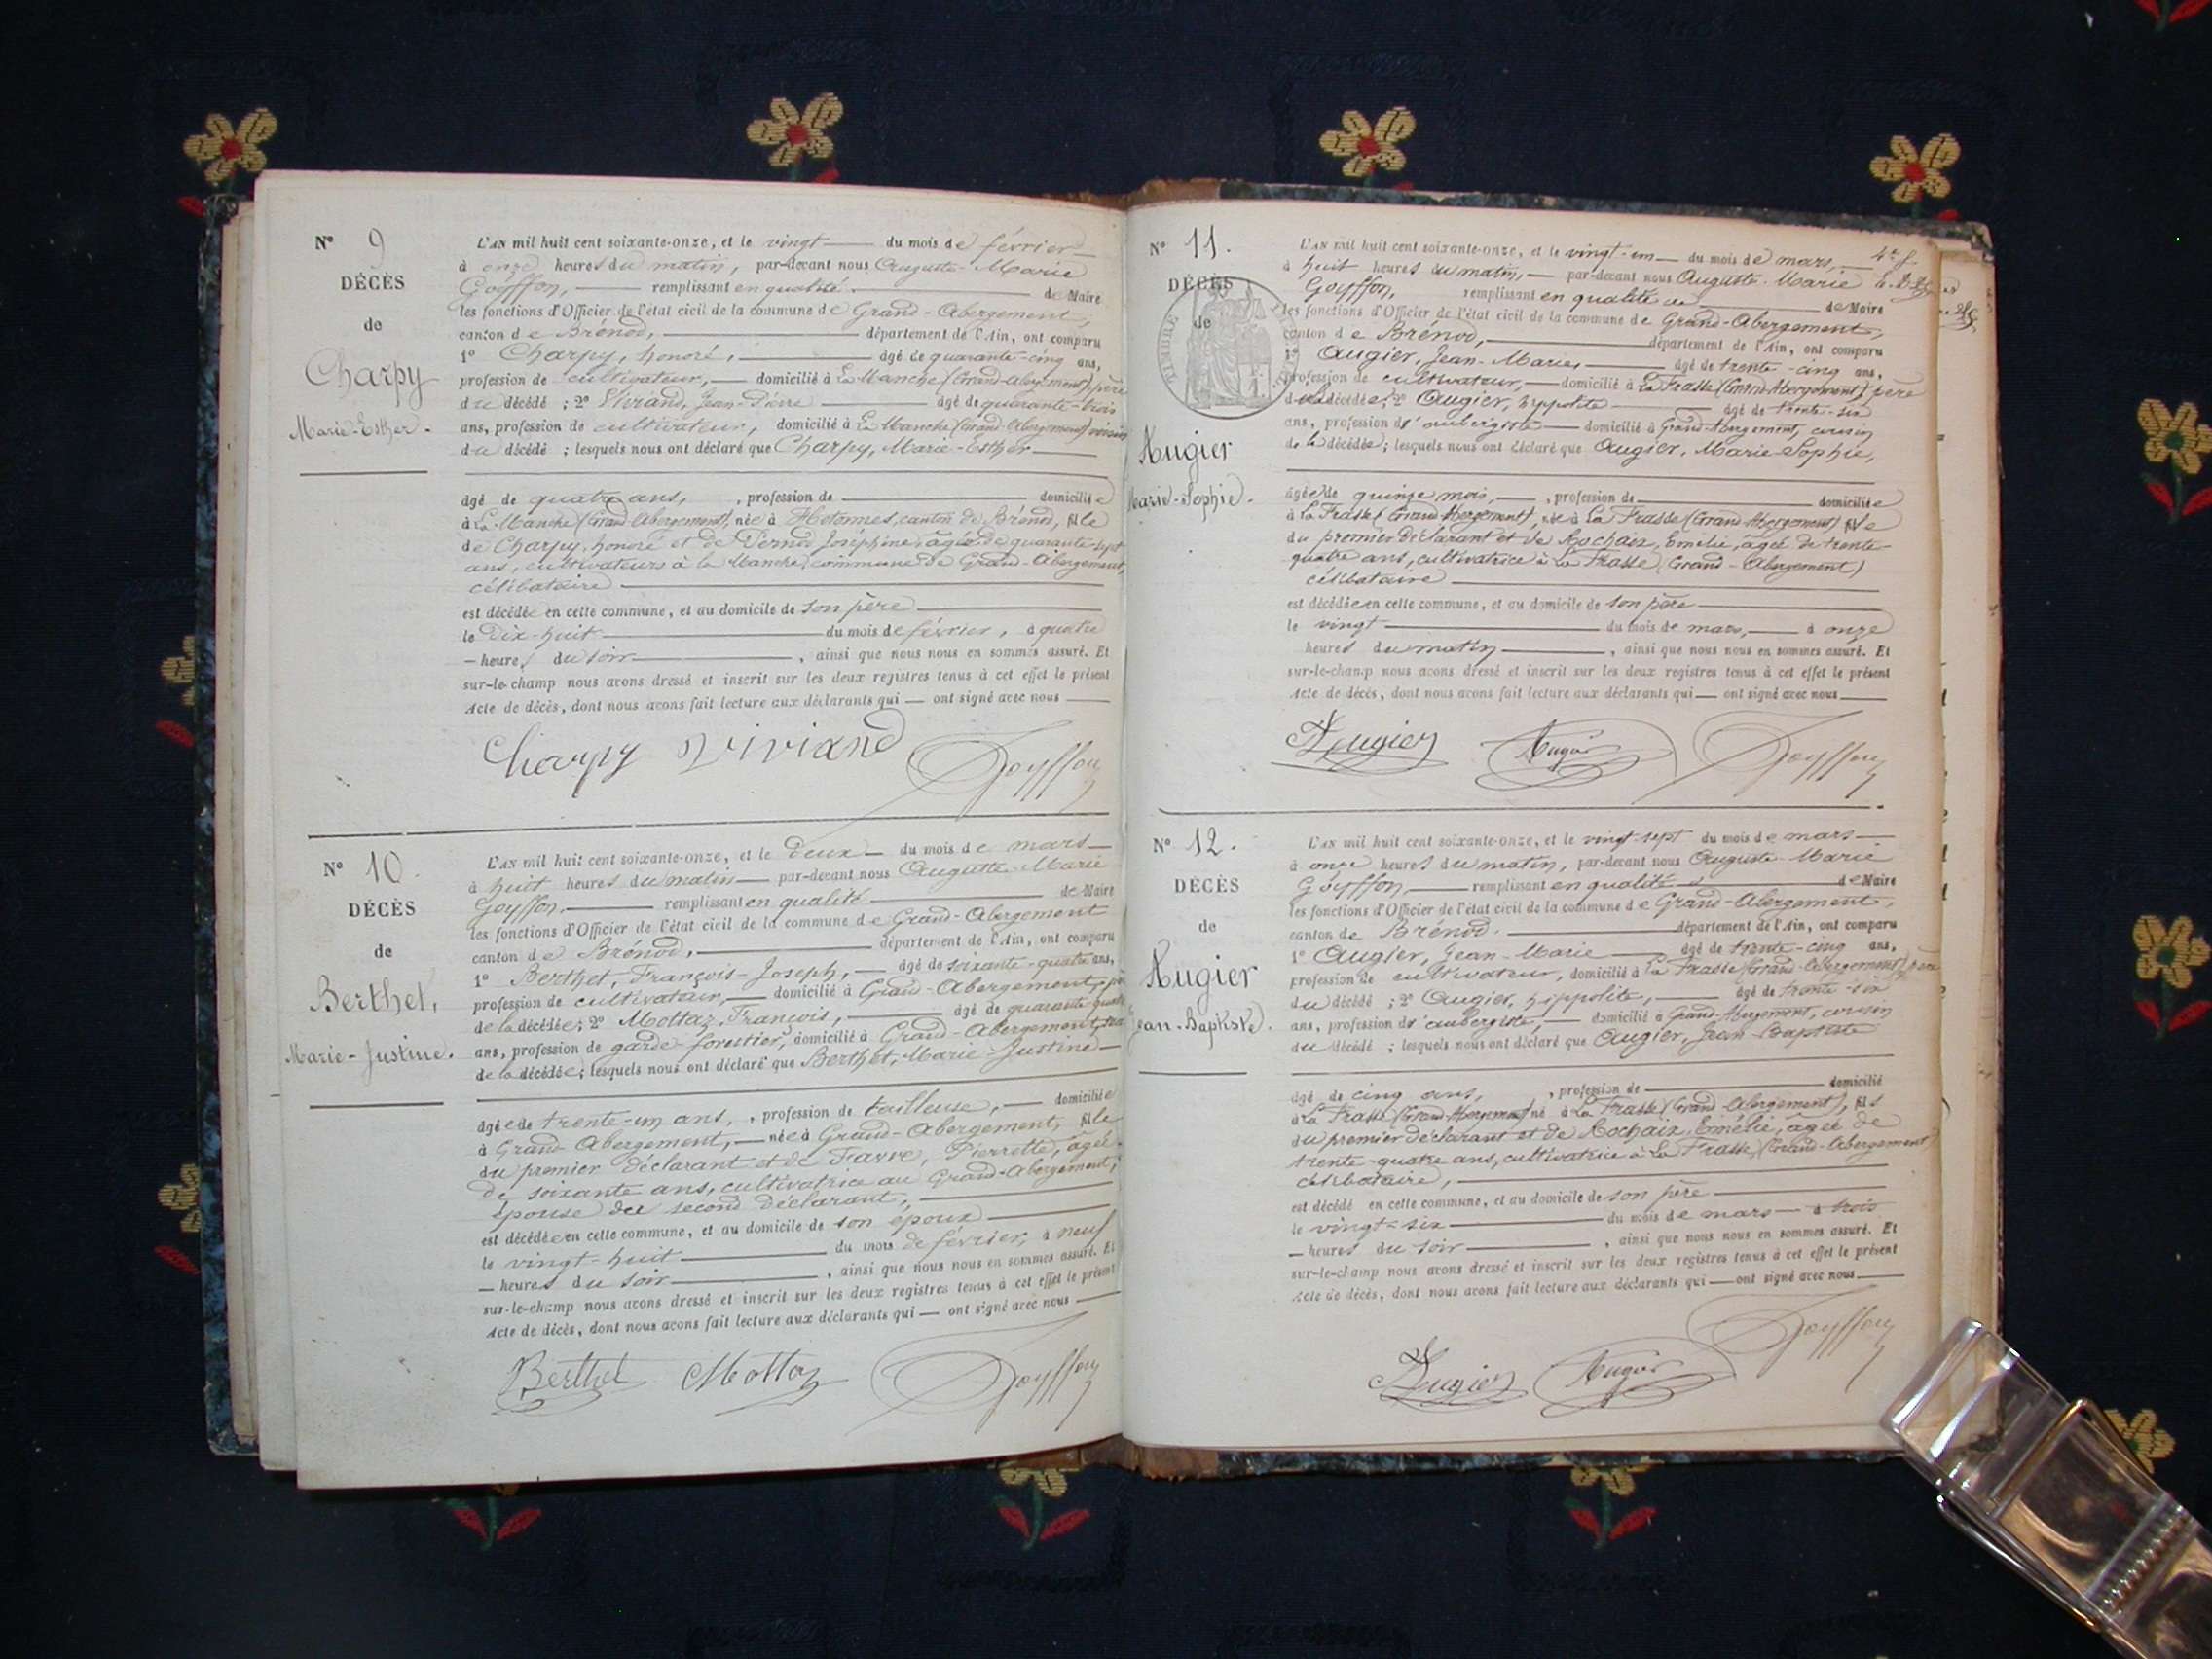 N° 9
DÉCÈS
de
Charpy
Marie-Esther.
L'AN mil huit cent soixante-onze, et le vingt du mois de février
à onze heures du matin, par-devant nous Auguste-Marie
Goyffon, remplissant en qualité de Maire
les fonctions d'Officier de l'état civil de la commune de Grand-Abergement,
canton de Brénod, département de l'Ain, ont comparu
1° Charpy, honoré, âgé de quarante-cinq ans,
profession de cultivateur, domicilié à La Manche (Grand-Abergement), père
du décédé ; 2° Vivrand, Jean-Pierre âgé de quarante-trois
ans, profession de cultivateur, domicilié à La Manche (Grand-Abergement) voisin
du décédé ; lesquels nous ont déclaré que Charpy, Marie-Esther
âgé de quatre ans, , profession de domiciliée
à La Manche (Grand-Abergement), née à Hotonnes, canton de Brénod, fille
de Charpy, honoré et de Vernod Joséphine, âgée de quarante-sept
ans, cultivateurs à la Manche, commune de Grand-Abergement,
célibataire
est décédée en cette commune, et au domicile de son père
le dix-huit du mois de février, à quatre
heures du soir , ainsi que nous nous en sommes assuré. Et
sur-le-champ nous avons dressé et inscrit sur les deux registres tenus à cet effet le présent
Acte de décès, dont nous avons fait lecture aux déclarants qui ont signé avec nous
Charpy Viviand Goyffon
N° 10.
DÉCÈS
de
Berthet,
Marie-Justine.
L'AN mil huit cent soixante-onze, et le deux du mois de mars
à huit heures du matin par-devant nous Auguste-Marie
Goyffon, remplissant en qualité de Maire
les fonctions d'Officier de l'état civil de la commune de Grand-Abergement
canton de Brénod, département de l'Ain, ont comparu
1° Berthet, François-Joseph, âgé de soixante-quatre ans,
profession de cultivateur, domicilié à Grand-Abergement, père
de la décédée; 2° Mottaz, François, âgé de quarante-quatre
ans, profession de garde-forestier, domicilié à Grand-Abergement,
de la décédée; lesquels nous ont déclaré que Berthet, Marie-Justine
âgée de trente-un ans, , profession de tailleuse, domiciliée
à Grand-Abergement, née à Grand-Abergement, fille
du premier déclarant et de Favre, Pierrette, âgée
de soixante ans, cultivatrice au Grand-Abergement,
épouse du second déclarant,
est décédée en cette commune, et au domicile de son époux
le vingt-huit du mois de février, à neuf
heures du soir , ainsi que nous nous en sommes assuré. Et
sur-le-champ nous avons dressé et inscrit sur les deux registres tenus à cet effet le présent
Acte de décès, dont nous avons fait lecture aux déclarants qui ont signé avec nous
Berthet Mottaz Goyffon
N° 11.
DÉCÈS
de
TIMBRE
Augier
Marie-Sophie.
4e f.
L'AN mil huit cent soixante-onze, et le vingt-un du mois de mars,
à huit heures du matin, par-devant nous Auguste-Marie
Goyffon, remplissant en qualité de Maire
les fonctions d'Officier de l'état civil de la commune de Grand-Abergement,
canton de Brénod, département de l'Ain, ont comparu
1° Augier, Jean-Marie, âgé de trente-cinq ans,
profession de cultivateur, domicilié à La Frasse (Grand-Abergement) père
de la décédée; 2° Augier, hippolite âgé de trente-six
ans, profession d'aubergiste domicilié à Grand-Abergement, cousin
de la décédée; lesquels nous ont déclaré que Augier, Marie-Sophie,
âgée de quinze mois, , profession de domiciliée
à La Frasse (Grand-Abergement), née à La Frasse (Grand-Abergement) fille
du premier déclarant et de Rochaix, Emélie, âgée de trente-
quatre ans, cultivatrice à La Frasse (Grand-Abergement)
célibataire
est décédée en cette commune, et au domicile de son père
le vingt du mois de mars, à onze
heures du matin , ainsi que nous nous en sommes assuré. Et
sur-le-champ nous avons dressé et inscrit sur les deux registres tenus à cet effet le présent
Acte de décès, dont nous avons fait lecture aux déclarants qui ont signé avec nous
Augier Augier Goyffon
N° 12.
DÉCÈS
de
Augier
Jean-Baptiste.
L'AN mil huit cent soixante-onze, et le vingt-sept du mois de mars
à onze heures du matin, par-devant nous Auguste-Marie
Goyffon, remplissant en qualité de Maire
les fonctions d'Officier de l'état civil de la commune de Grand-Abergement,
canton de Brénod. département de l'Ain, ont comparu
1° Augier, Jean-Marie âgé de trente-cinq ans,
profession de cultivateur, domicilié à La Frasse (Grand-Abergement), père
du décédé ; 2° Augier, hippolite, âgé de trente-six
ans, profession d'aubergiste, domicilié à Grand-Abergement, cousin
du décédé ; lesquels nous ont déclaré que Augier, Jean-Baptiste
âgé de cinq ans, , profession de domicilié
à La Frasse (Grand-Abergement) né à La Frasse (Grand-Abergement), fils
du premier déclarant et de Rochaix, Emélie, âgée de
trente-quatre ans, cultivatrice à La Frasse (Grand-Abergement)
célibataire,
est décédé en cette commune, et au domicile de son père
le vingt-six du mois de mars à trois
heures du soir , ainsi que nous nous en sommes assuré. Et
sur-le-champ nous avons dressé et inscrit sur les deux registres tenus à cet effet le présent
Acte de décès, dont nous avons fait lecture aux déclarants qui ont signé avec nous
Augier Augier Goyffon